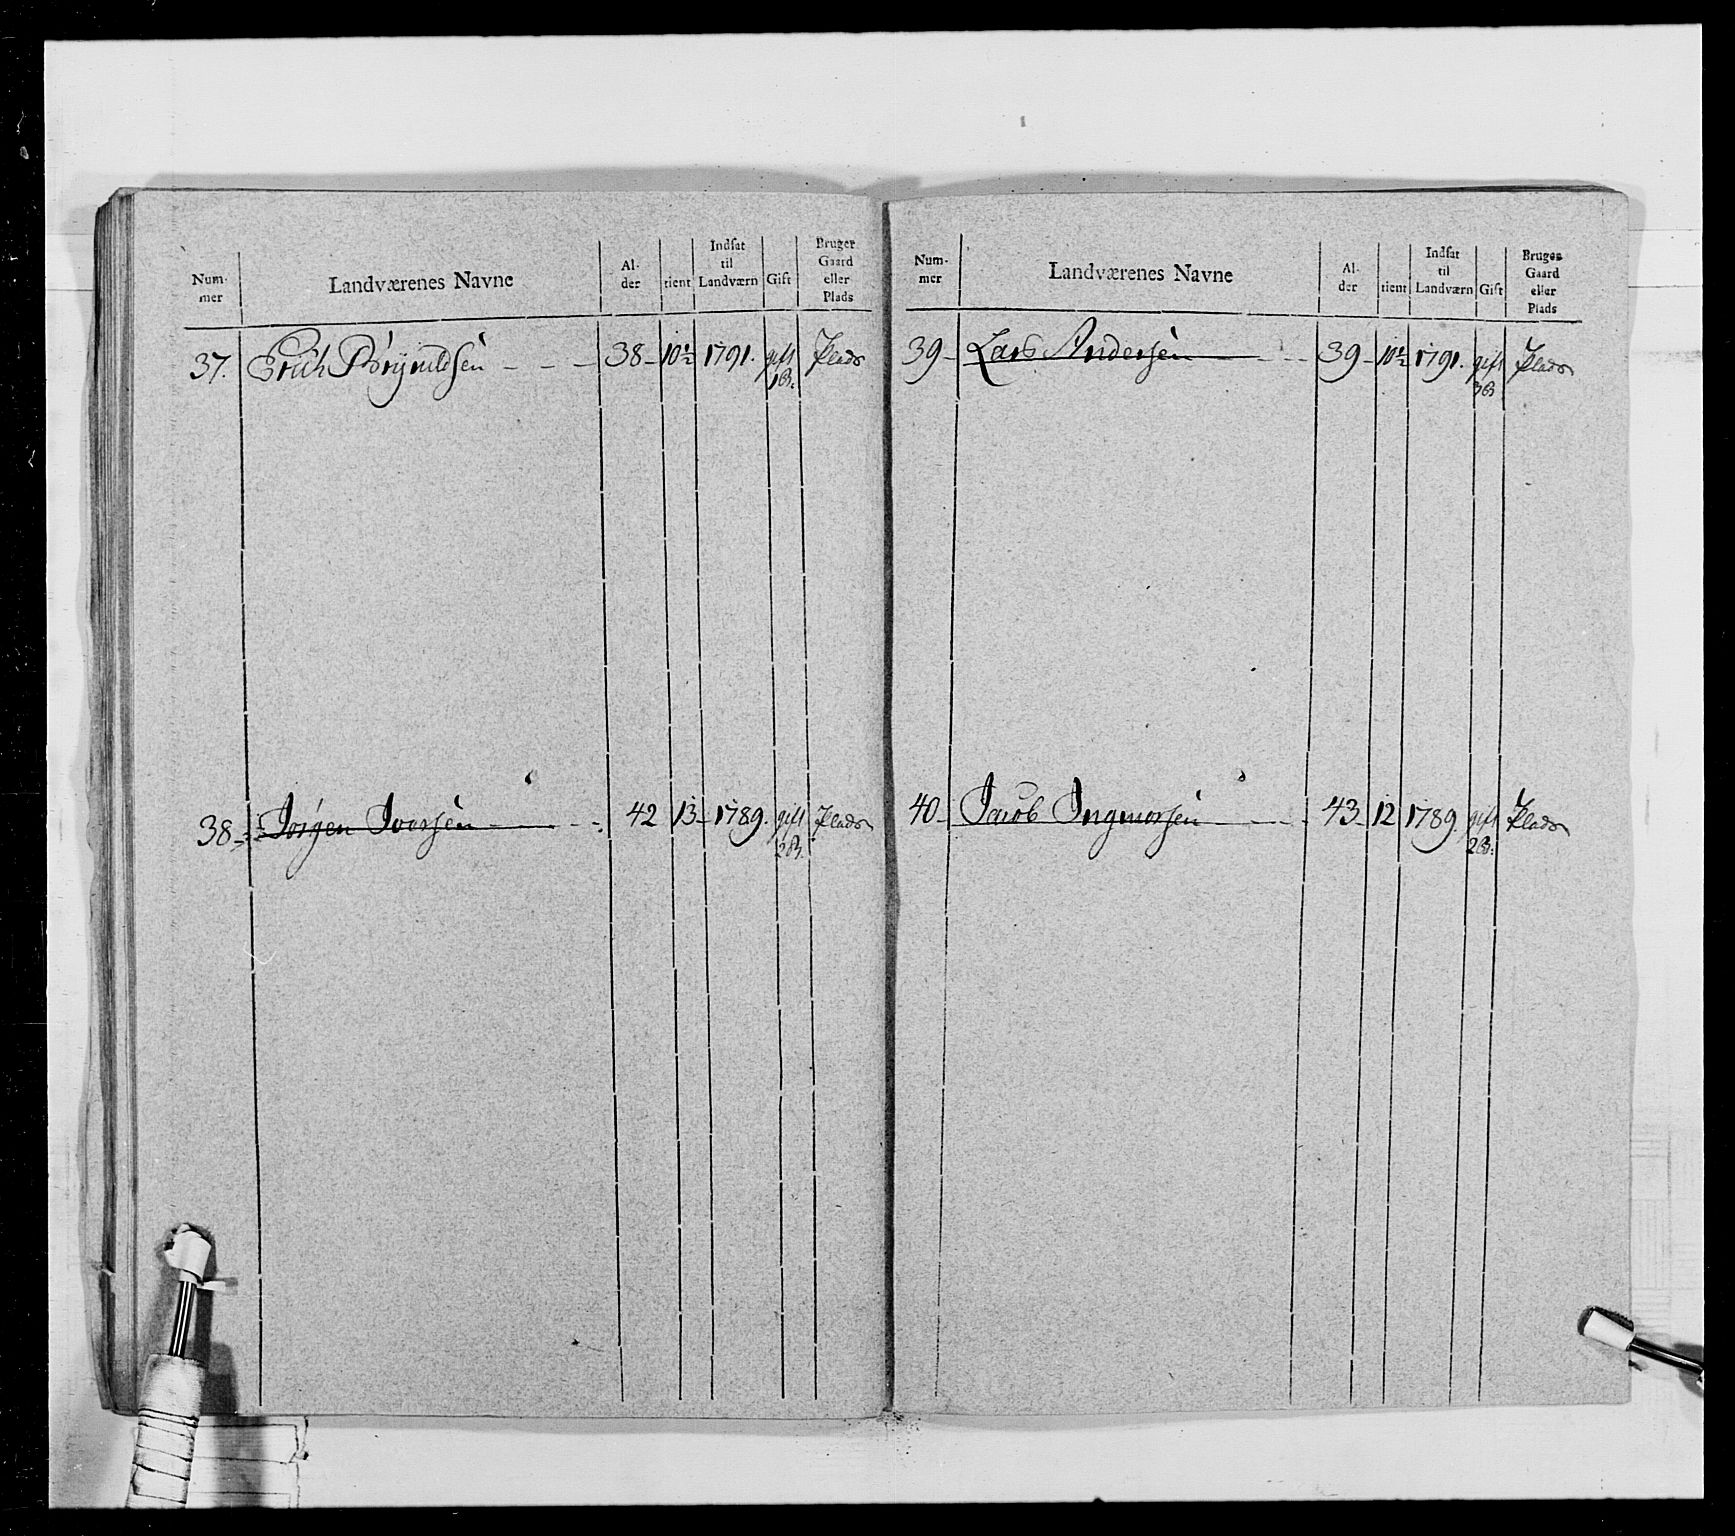 Num-
mer
Landværenes Navne
Al-
der
tient
Indsat
til
Landværn
Gift
Bruger
Gaard
eller
Plads
37. Erich Brynildsen - - - 38 - 10½ 1791. gift Plads
1 B:
38 - Jørgen Iversen - - - 42 13 - 1789. gift Plads
2 B.
Num-
mer
Landværenes Navne
Al-
der
tient
Indsat
til
Landværn
Gift
Bruger
Gaard
eller
Plads
39 - Lars Andersen - - - 39 - 10½ 1791. gift Plads
3 B
40 - Jacob Ingmorsen - - - 43 12 1789. gift Plads
2 B: